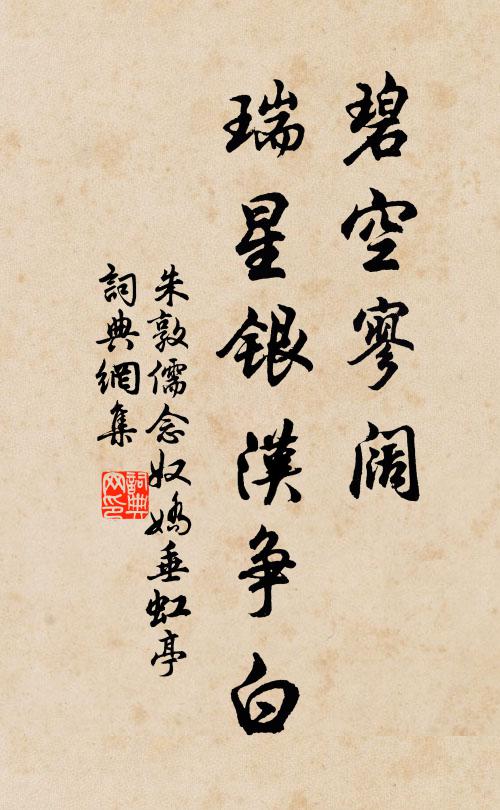 碧空寥阔
瑞星银漢争白
朱敦儒念奴嬌垂虹亭
詞典網集
詞典网印